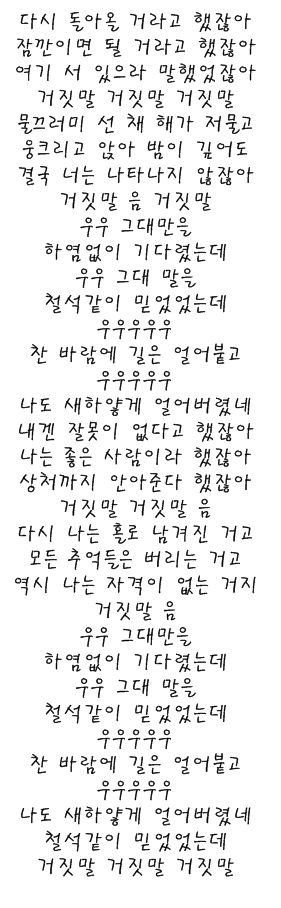 다시 돌아올 거라고 했잖아
잠깐이면 될 거라고 했잖아
여기 서 있으라 말했었잖아
거짓말 거짓말 거짓말
물끄러미 선 채 해가 저물고
웅크리고 앉아 밤이 깊어도
결국 너는 나타나지 않잖아
거짓말 음 거짓말
우우 그대만을
하염없이 기다렸는데
우우 그대 말을
철석같이 믿었었는데
우우우우우
찬 바람에 길은 얼어붙고
우우우우우
나도 새하얗게 얼어버렸네
내겐 잘못이 없다고 했잖아
나는 좋은 사람이라 했잖아
상처까지 안아준다 했잖아
거짓말 거짓말 음
다시 나는 홀로 남겨진 거고
모든 추억들은 버리는 거고
역시 나는 자격이 없는 거지
거짓말 음
우우 그대만을
하염없이 기다렸는데
우우 그대 말을
철석같이 믿었었는데
우우우우우
찬 바람에 길은 얼어붙고
우우우우우
나도 새하얗게 얼어버렸네
철석같이 믿었었는데
거짓말 거짓말 거짓말